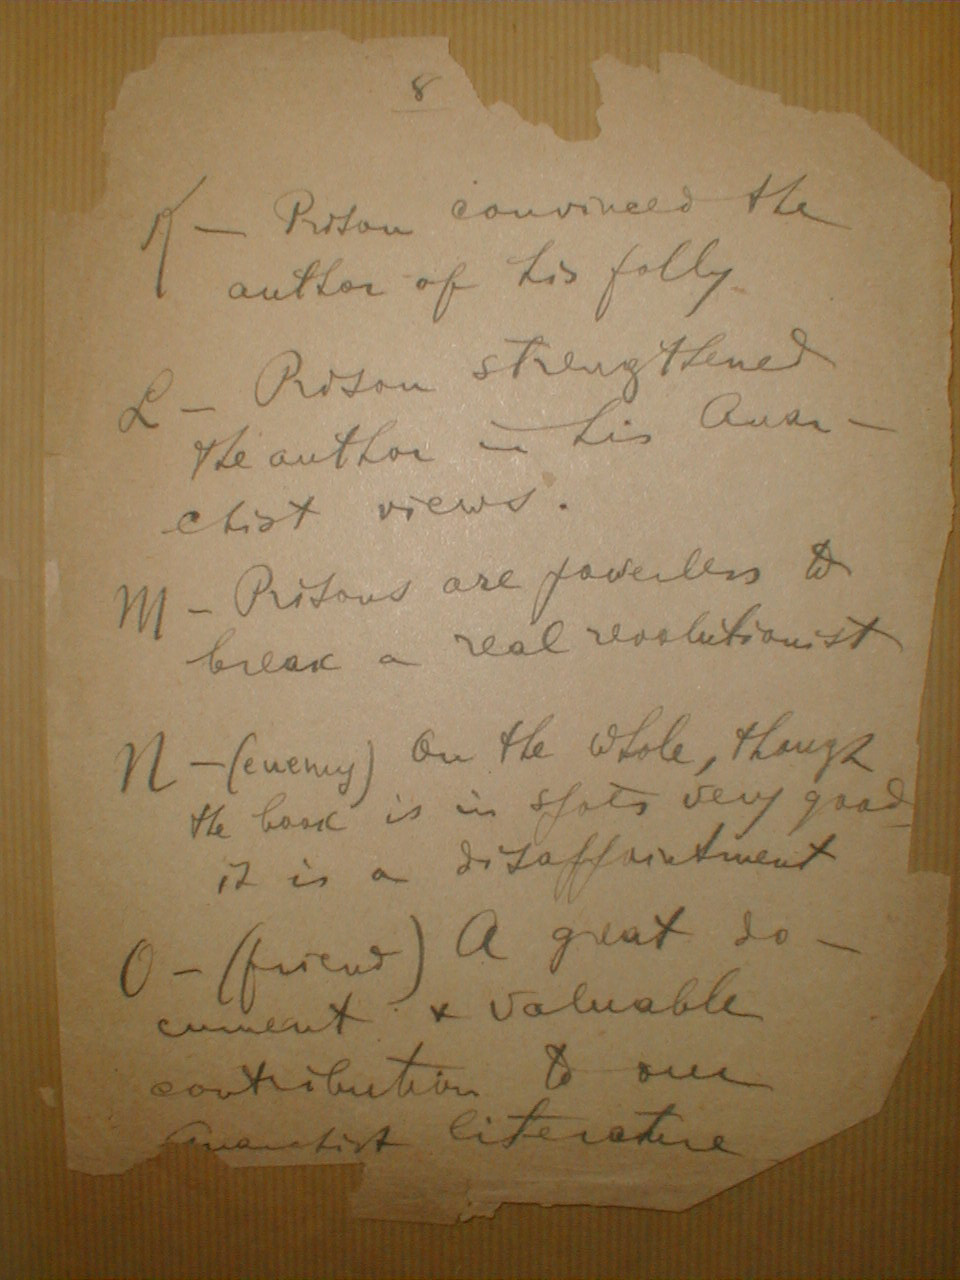 8
K — Prison convinced the
author of his folly
L — Prison strengthened
the author in his Anar—
chist views.
M — Prisons are powerless to
break a real revolutionist
N — (enemy) On the whole, though
the book is in spots very good
it is a disappointment
O — (friend) A great do—
cument & valuable
contribution to our
Anarchist literature